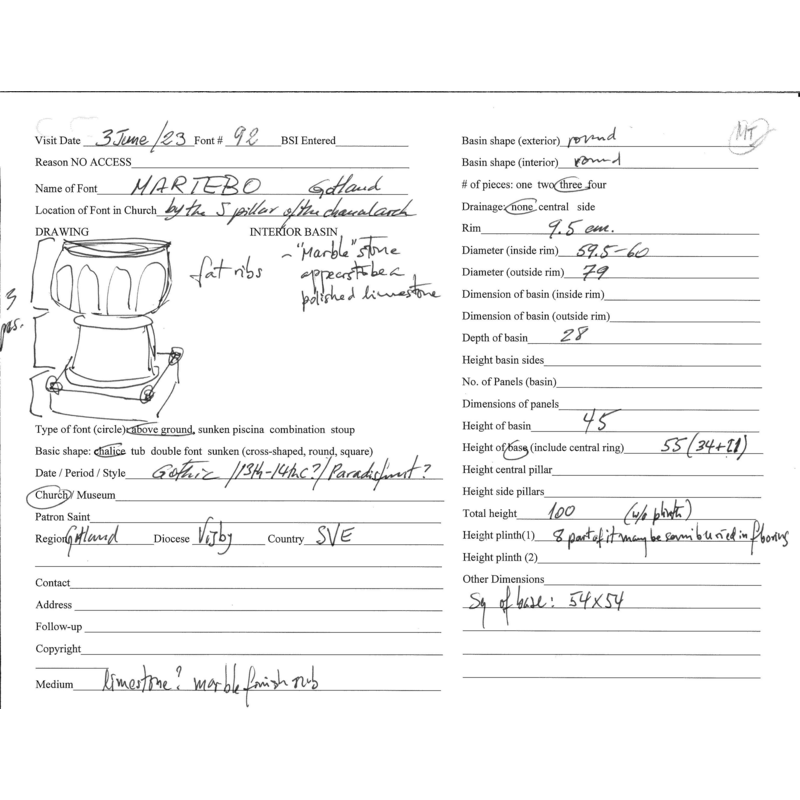 Visit Date 3 June/23 Font # 92 BSI Entered
Reason NO ACCESS
Name of Font MARTEBO Gotland
Location of Font in Church by the S pillar of the chancel arch
DRAWING INTERIOR BASIN
3 pcs.
fat ribs
~ "Marble" stone
appears to be a
polished limestone
Type of font (circle) above ground, sunken piscina combination stoup
Basic shape: chalice tub double font sunken (cross-shaped, round, square)
Date / Period / Style Gothic /13th-14thC?/ Paradisfunt?
Church / Museum
Patron Saint
Region Gotland Diocese Visby Country SVE
Contact
Address
Follow-up
Copyright
Medium limestone? marble finish rub
MT
Basin shape (exterior) round
Basin shape (interior) round
# of pieces: one two three four
Drainage: none central side
Rim 9.5 cm.
Diameter (inside rim) 59.5-60
Diameter (outside rim) 79
Dimension of basin (inside rim)
Dimension of basin (outside rim)
Depth of basin 28
Height basin sides
No. of Panels (basin)
Dimensions of panels
Height of basin 45
Height of base (include central ring) 55 (34+21)
Height central pillar
Height side pillars
Total height 100 (w/o plinth)
Height plinth(1) 8 part of it may be semi buried in flooring
Height plinth (2)
Other Dimensions
Sq of base: 54x54